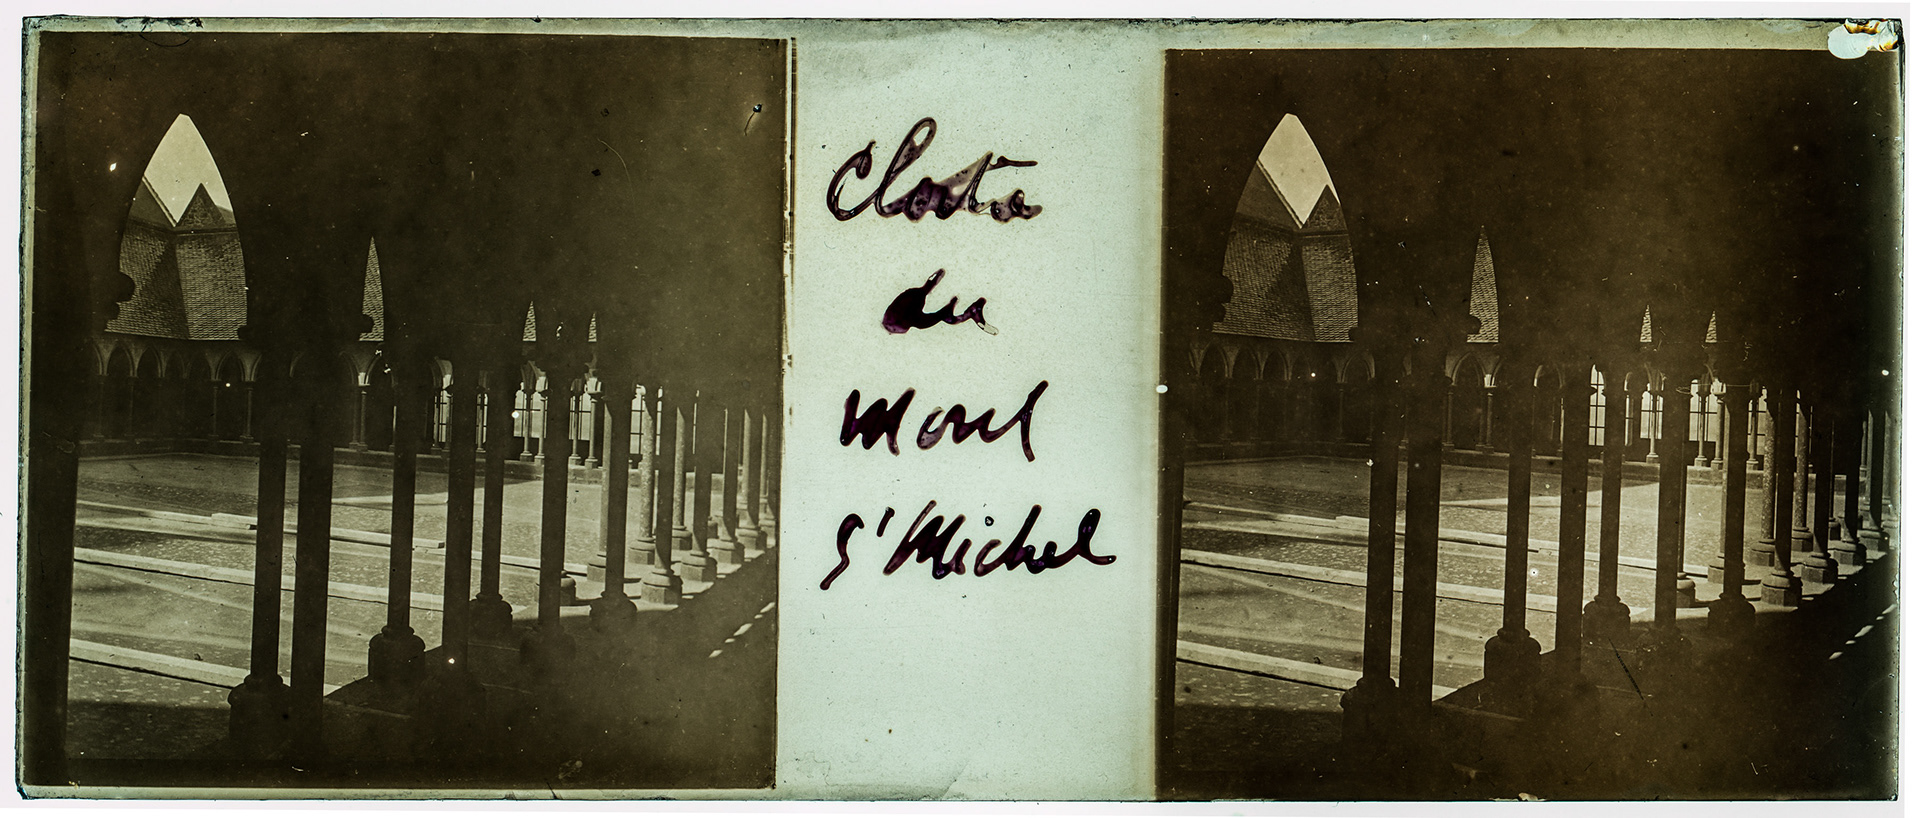 Cloitre
du
Mont
St Michel